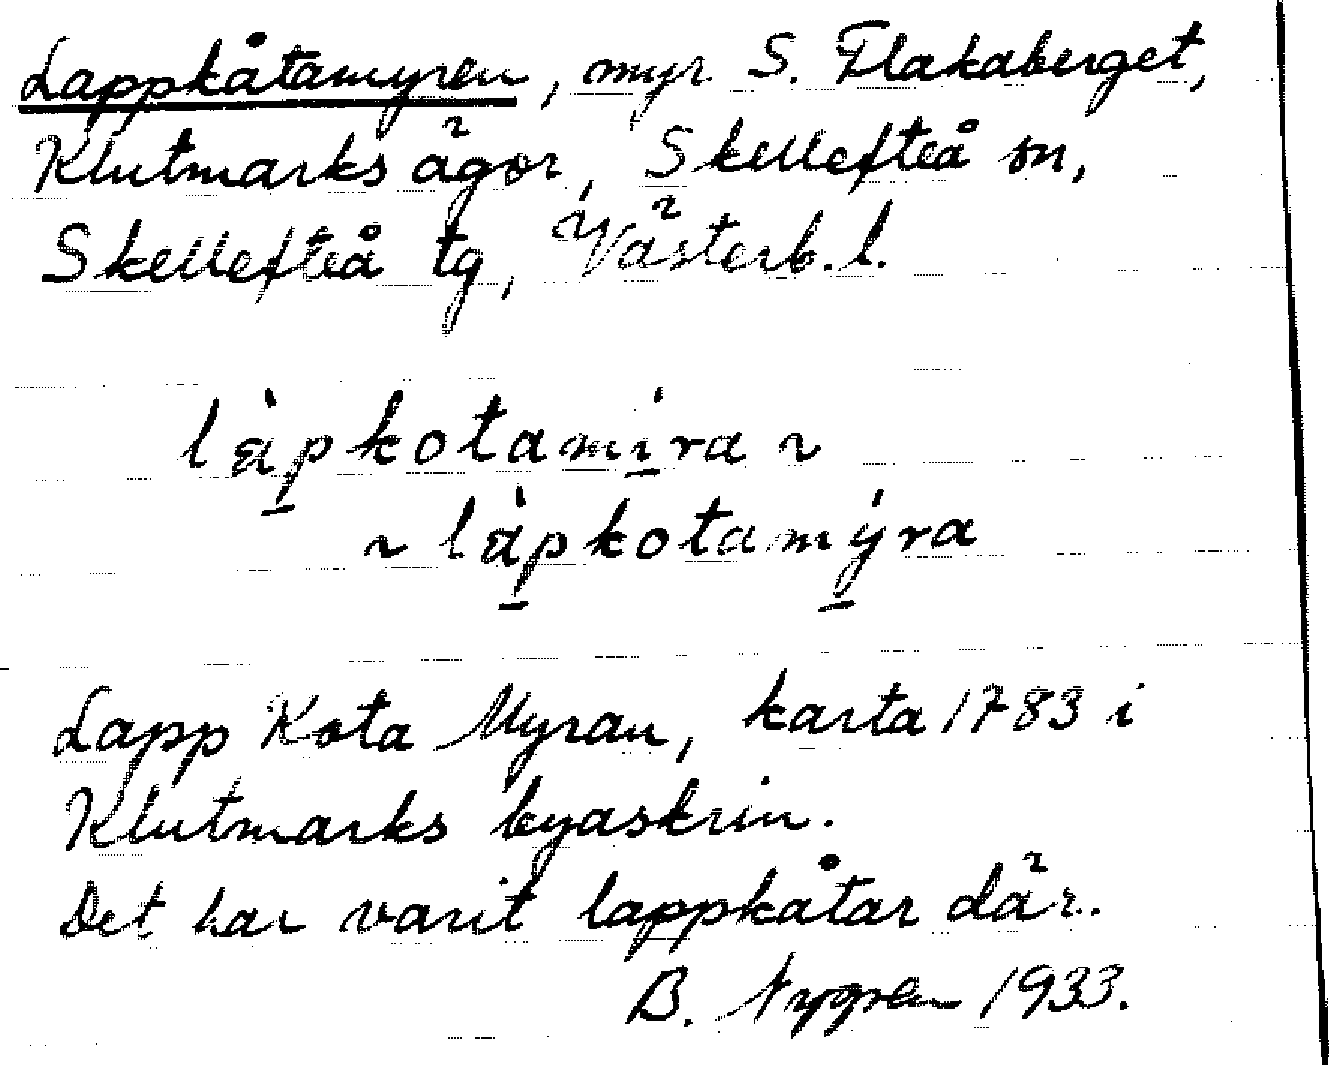 Lappkåtamyren, myr S. Flakaberget,
Klutmarks ägor, Skellefteå sn,
Skellefteå tg, Västerb. l.
làpkotamíra ~
~ làpkotamýra
Lapp Kota Myran, karta 1783 i
Klutmarks byaskrin.
Det har varit lappkåtar där.
B. Nygren 1933.